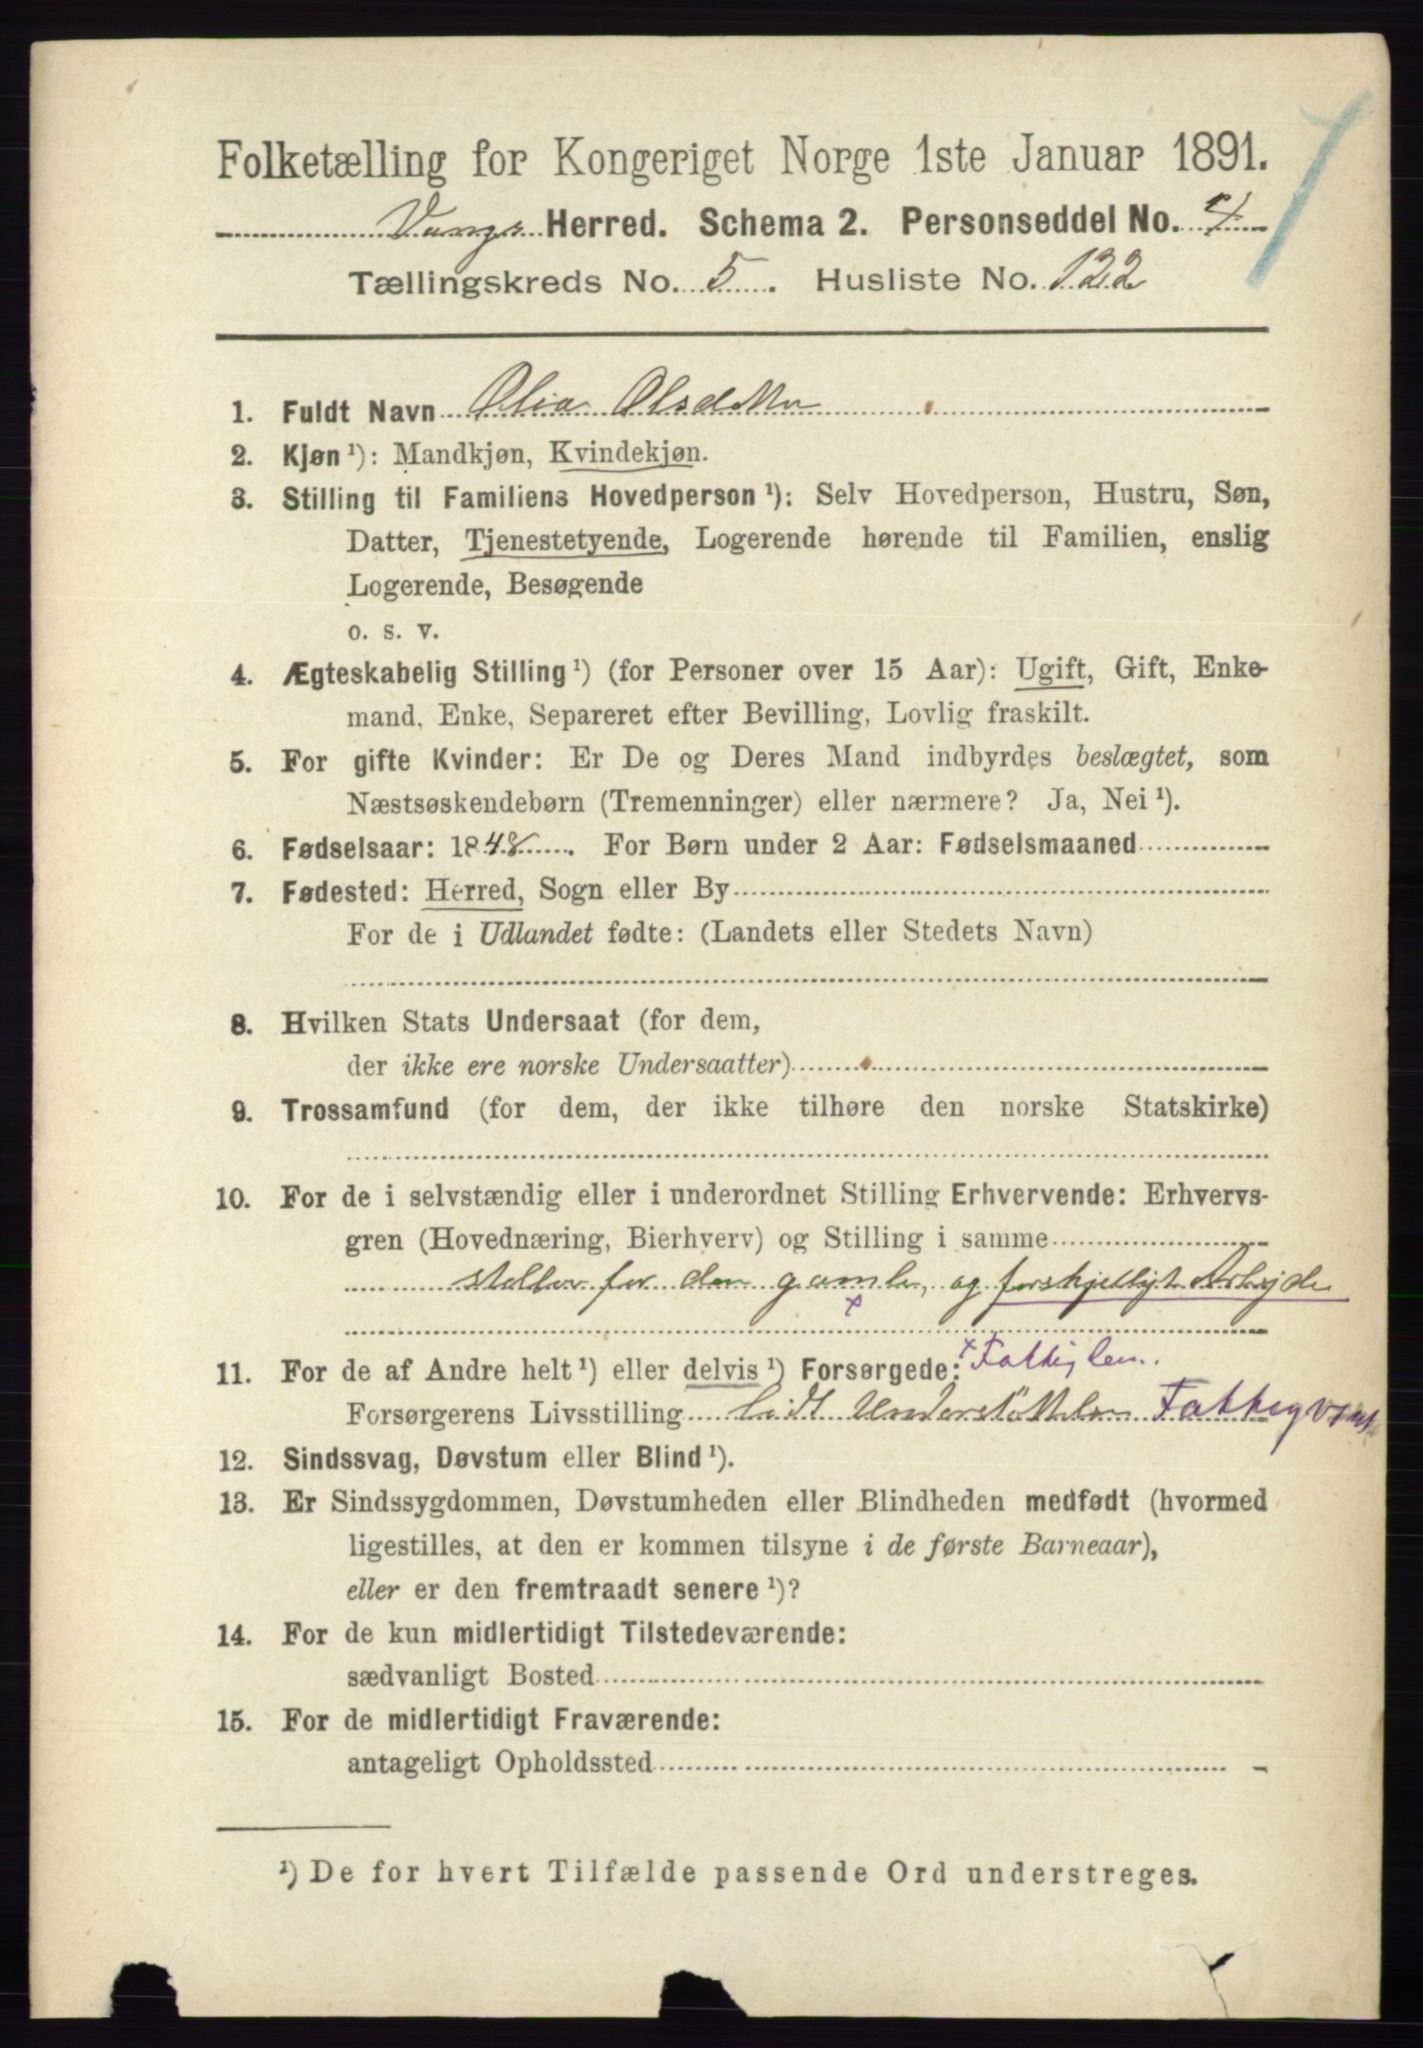 Folketælling for Kongeriget Norge 1ste Januar 1891.
Vangs Herred. Schema 2. Personseddel No. 4
Tællingskreds No. 5. Husliste No. 122
1. Fuldt Navn Olia Olsdatter
2. Kjøn ¹): Mandkjøn, Kvindekjøn.
3. Stilling til Familiens Hovedperson ¹): Selv Hovedperson, Hustru, Søn,
Datter, Tjenestetyende, Logerende hørende til Familien, enslig
Logerende, Besøgende
o. s. v.
4. Ægteskabelig Stilling ¹) (for Personer over 15 Aar): Ugift, Gift, Enke-
mand, Enke, Separeret efter Bevilling, Lovlig fraskilt.
5. For gifte Kvinder: Er De og Deres Mand indbyrdes beslægtet, som
Næstsøskendebørn (Tremenninger) eller nærmere? Ja, Nei ¹).
6. Fødselsaar: 1848. For Børn under 2 Aar: Fødselsmaaned
7. Fødested: Herred, Sogn eller By
For de i Udlandet fødte: (Landets eller Stedets Navn)
8. Hvilken Stats Undersaat (for dem,
der ikke ere norske Undersaatter)
9. Trossamfund (for dem, der ikke tilhøre den norske Statskirke)
10. For de i selvstændig eller i underordnet Stilling Erhvervende: Erhvervs-
gren (Hovednæring, Bierhverv) og Stilling i samme
steller for den gamle, og forskjelligt Arbejde
x
11. For de af Andre helt ¹) eller delvis ¹) Forsørgede: x Fattiglem.
Forsørgerens Livsstilling lidt Understöttelse Fattigvæs
12. Sindssvag, Døvstum eller Blind ¹).
13. Er Sindssygdommen, Døvstumheden eller Blindheden medfødt (hvormed
ligestilles, at den er kommen tilsyne i de første Barneaar),
eller er den fremtraadt senere ¹)?
14. For de kun midlertidigt Tilstedeværende:
sædvanligt Bosted
15. For de midlertidigt Fraværende:
antageligt Opholdssted
¹) De for hvert Tilfælde passende Ord understreges.